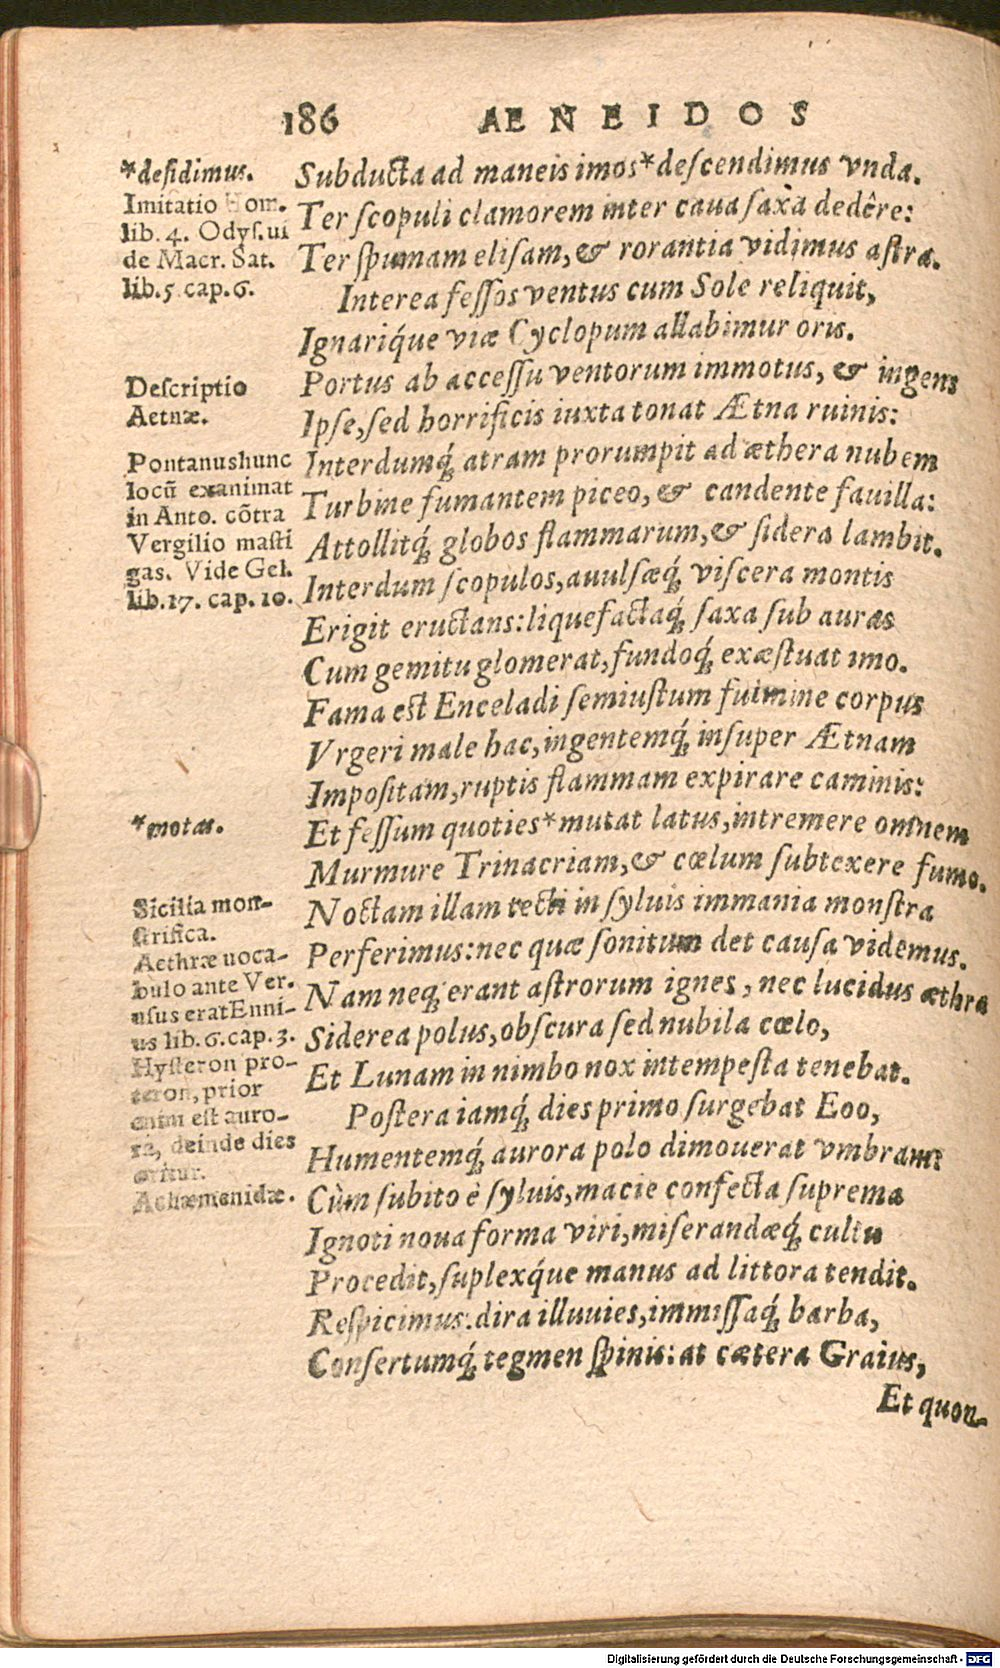 186 AENEIDOS
*desidimus.
Imitatio Hom.
lib. 4. Odyſ. ui
de Macr. Sat.
lib. 5 cap. 6.
Deſcriptio
Aetnæ.
Pontanus hunc
locũ exanimat
in Anto. cõtra
Vergilio maſti
gas. Vide Gel.
lib. 17. cap. 10.
*motat.
Sicilia mon-
ſtrifica.
Aethræ uoca-
bulo ante Ver.
uſus erat Enni-
us lib. 6. cap. 3.
Hyſteron pro-
teron, prior
enim eſt auro-
ra, deinde dies
oritur.
Achæmenidæ.
Subducta ad maneis imos* deſcendimus vnda.
Ter ſcopuli clamorem inter caua ſaxa dedêre:
Ter ſpumam eliſam, & rorantia vidimus aſtra.
Interea feſſos ventus cum Sole reliquit,
Ignariq́ue viæ Cyclopum allabimur oris.
Portus ab acceſſu ventorum immotus, & ingens
Ipſe, ſed horrificis iuxta tonat Ætna ruinis:
Interdumq́; atram prorumpit ad æthera nubem
Turbine fumantem piceo, & candente fauilla:
Attollitq́; globos flammarum, & ſidera lambit.
Interdum ſcopulos, auulſæq́; viſcera montis
Erigit eructans: liquefactaq́; ſaxa ſub auras
Cum gemitu glomerat, fundoq́; exæſtuat imo.
Fama eſt Enceladi ſemiuſtum fulmine corpus
Vrgeri male hac, ingentemq́; inſuper Ætnam
Impoſitam, ruptis flammam expirare caminis:
Et feſſum quoties* mutat latus, intremere omnem
Murmure Trinacriam, & cœlum ſubtexere fumo.
Noctam illam tecti in ſyluis immania monſtra
Perferimus: nec quæ ſonitum det cauſa videmus.
Nam neq; erant aſtrorum ignes, nec lucidus æthra
Siderea polus, obſcura ſed nubila cœlo,
Et Lunam in nimbo nox intempeſta tenebat.
Poſtera iamq́; dies primo ſurgebat Eoo,
Humentemq́; aurora polo dimouerat vmbram:
Cùm ſubito è ſyluis, macie confecta ſuprema
Ignoti noua forma viri, miſerandæq́; cultu
Procedit, ſuplexq́ue manus ad littora tendit.
Reſpicimus: dira illuuies, immiſſaq́; barba,
Conſertumq́; tegmen ſpinis: at cætera Graius,
Et quon-
Digitalisierung gefördert durch die Deutsche Forschungsgemeinschaft - DFG